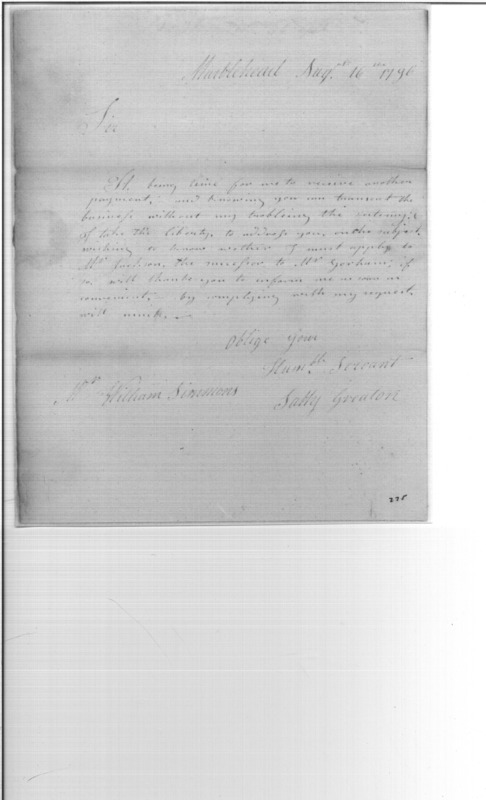 Marblehead Augst. 16th 1796
Sir
It being time for me to receive another
payment, and knowing you can transact the
business without my troubling the
I take the liberty, to address you, on the subject,
wishing to know wether I must apply to
Mr. Jackson, the successor to Mr. Gorham; if
so, will thank you to inform me as soon as
convenient; by complying with my request,
will much
oblige your
Humble. Servant
Mr. William Simmons
Sally
225